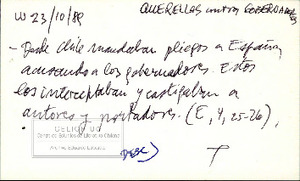 W 23/10/88 QUERELLAS contra GOBERNADORES
- Desde Chile mandaban pliegos a España,
acusando a los gobernadores. Estos
los interceptaban y castigaban a
autores y portadores. (E, 4, 25-26).
CELICH UC